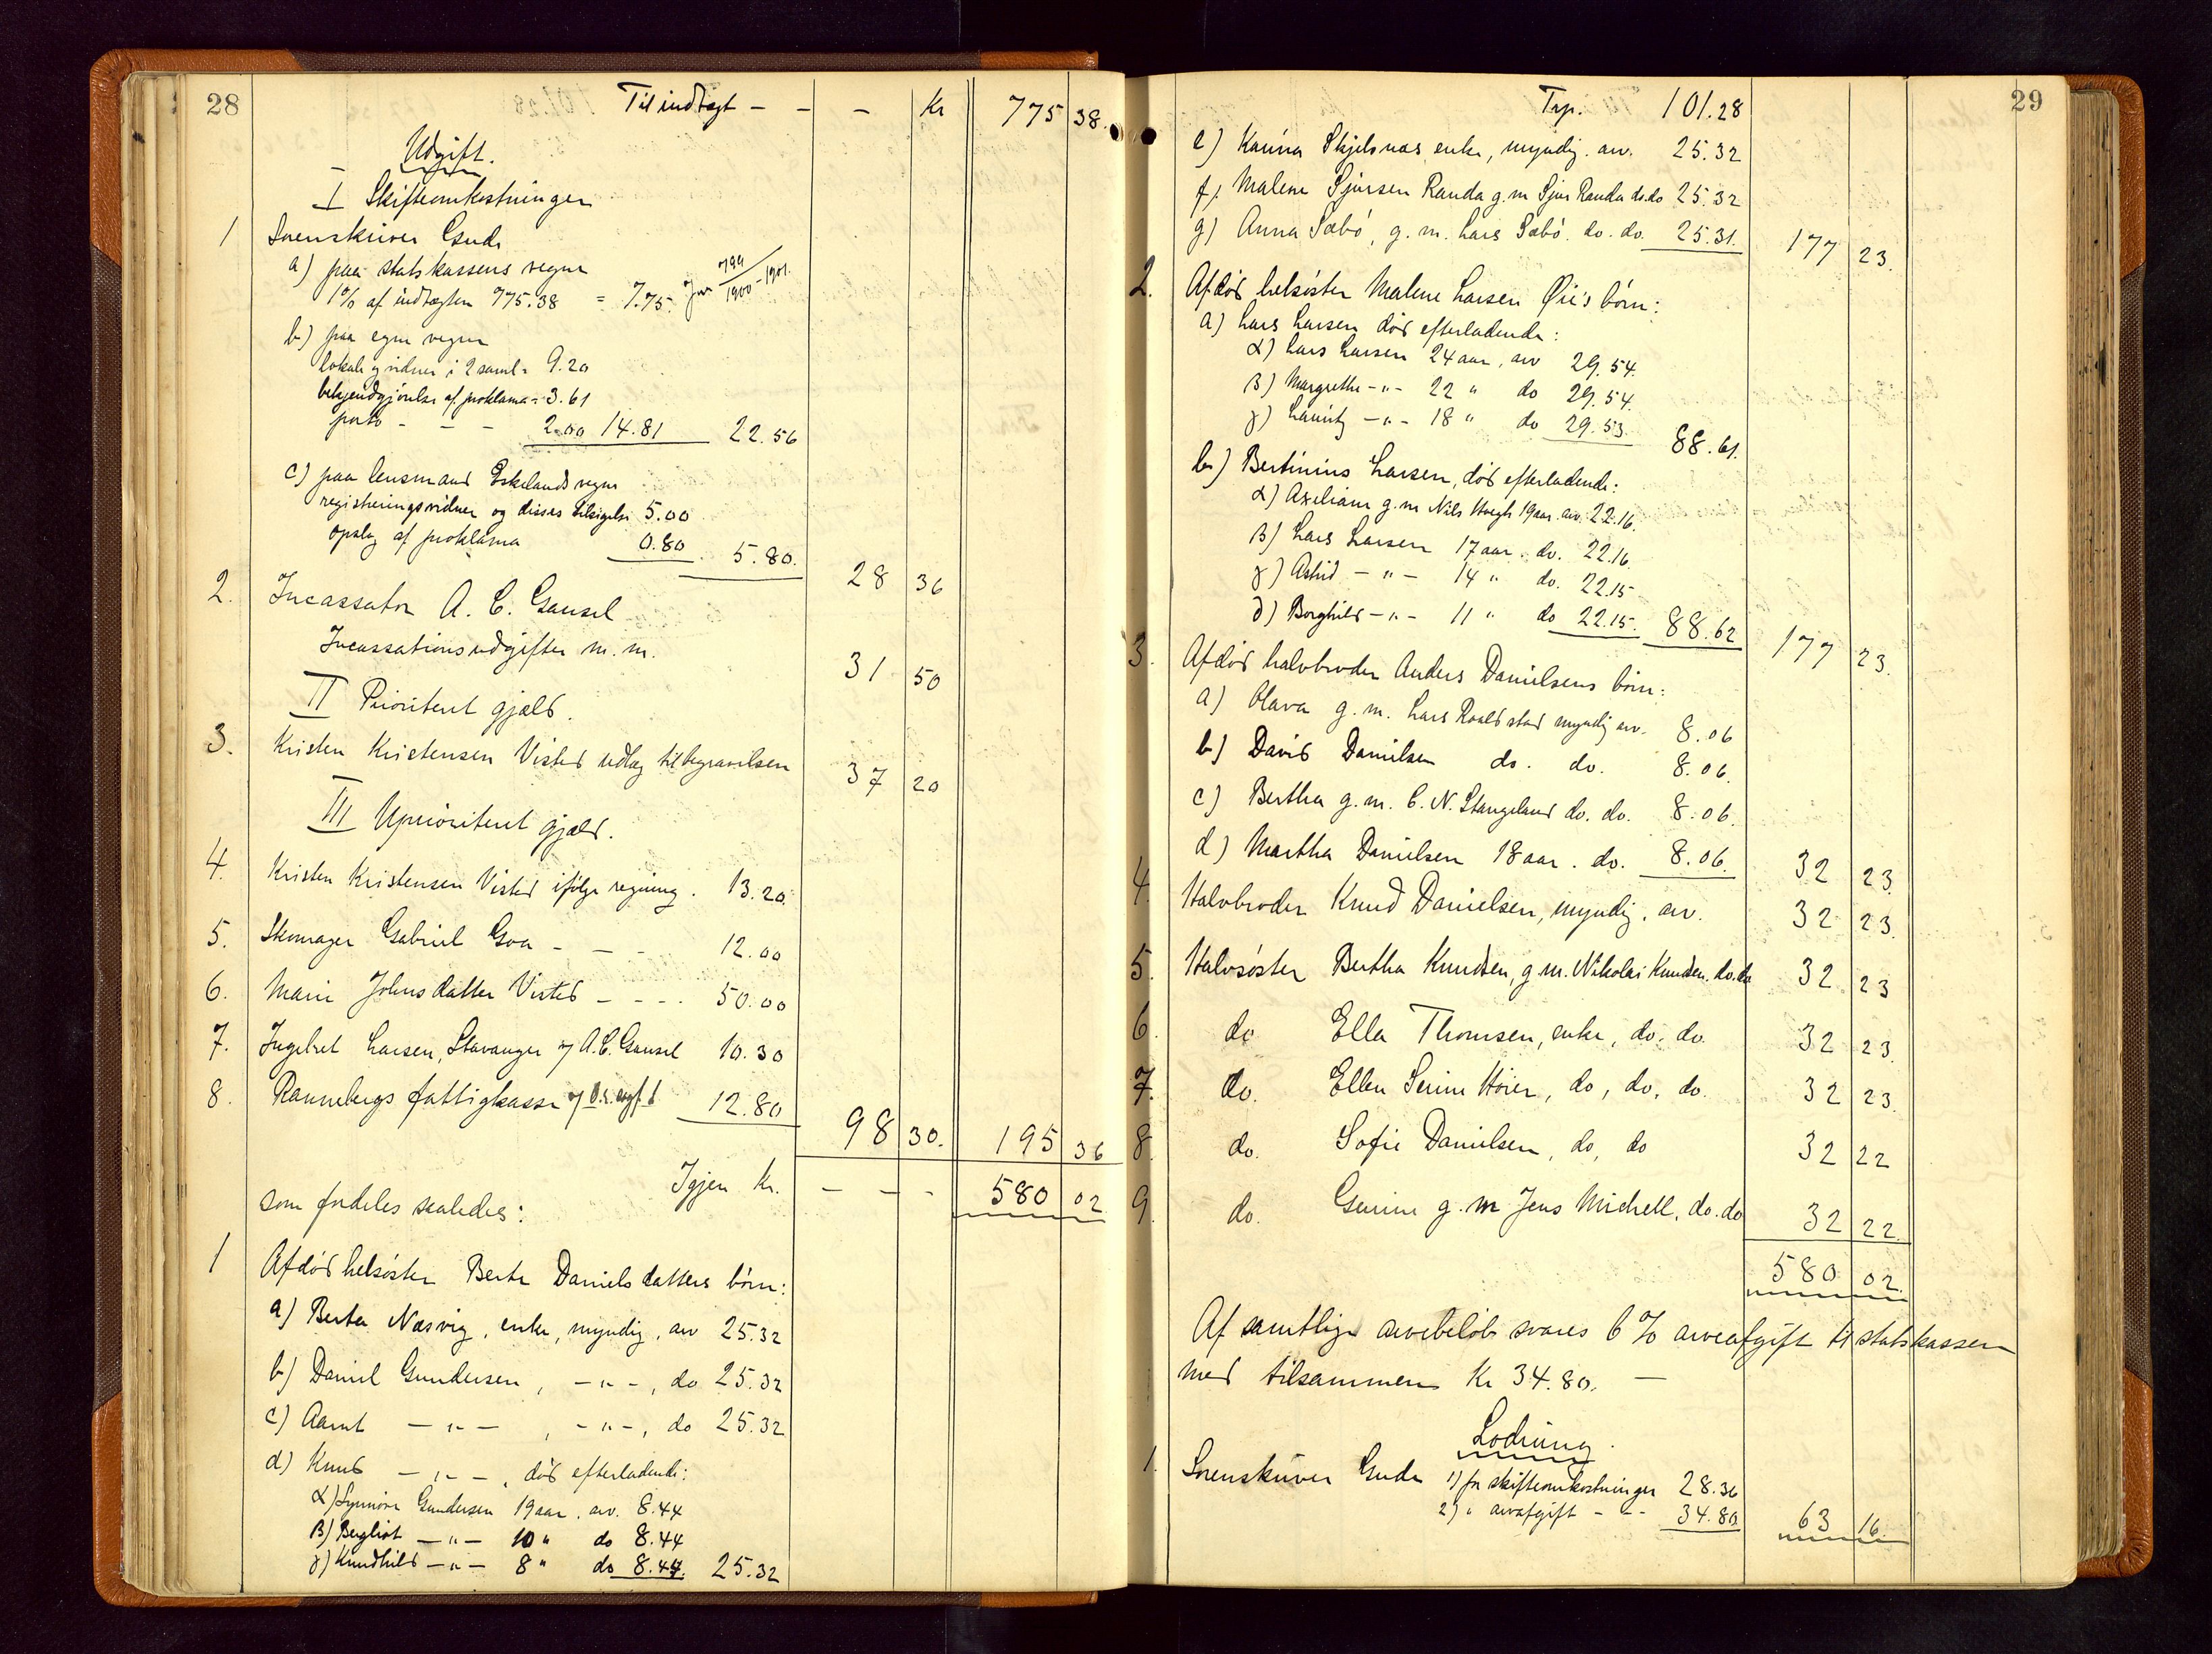 28
Til indtægt - - - Kr 775 38.
Udgift.
I Skifteomkostninger
1 Sorenskriver Gude
a) paa statskassens vegne
1% af indtægten 775.38 = 7.75. 799/1900-1901.
b) paa egne vegne
lokale og vidner i 2 saml = 9.20
bekjendtgjörelse af proklama = 3.61
porto - - - 2.00 14.81 22.56
c) paa lensmand Eskelands vegne
registreringsvidner og disses tilsigelse 5.00
opslag af proklama 0.80 5.80. 28 36
2. Incassator A. C. Gausel
Incassationsudgifter m. m. 31 50
II Prioritert gjæld.
3. Kristen Kristensen Visted udlæg til begravelsen 37 20
III Uprioritert gjæld.
4. Kristen Kristensen Visted ifölge regning. 13.20.
5. Skomager Gabriel Goa - - - 12.00
6. Marie Johnsdatter Visted - - - - 50.00
7. Ingebret Larsen, Stavanger v/ A. C. Gausel 10.30
8. Rannebergs fattigkasse v/ 12.80 98 30. 195 36
Igjen Kr. - - - 580 02
som fordeles saaledes:
1 Afdöd helsöster Berte Danielsdatters börn:
a) Berta Næsvig, enke, myndig, arv 25.32
b) Daniel Gundersen, -"-, do 25.32
c) Aamt -"-, -"-, do 25.32
d) Knud -"-, död efterladende:
α) Synnöve Gundersen 19 aar, arv. 8.44
β) Bergliot -"- 10 " do 8.44
γ) Knudhild -"- 8 " do 8.44. 25.32
29
Trp. 101.28
e) Karina Skjelsnæs, enke, myndig. arv. 25.32
f) Malene Sjursen Randa g. m Sjur Randa do. do 25.32
g) Anna Sæbö, g. m. Lars Sæbö. do. do. 25.31. 177 23.
2. Afdöd helsöster Malene Larsen Øie's börn:
a) Lars Larsen död efterladende:
α) Lars Larsen 24 aar, arv 29.54.
β) Margrethe -"- 22 " do 29.54.
γ) Lauritz -"- 18 " do 29.53. 88.61.
b) Bertinius Larsen, död efterladende:
α) Axeliane g. m Nils Hoegh 19 aar. arv. 22.16.
β) Lars Larsen 17 aar. do. 22.16.
γ) Astrid -"- 14 " do. 22.15
δ) Borghild -"- 11 " do 22.15. 88.62 177 23.
3. Afdöd halvbroder Anders Danielsens börn:
a) Olava g. m. Lars Roaldstad myndig arv. 8.06
b) David Danielsen do. do. 8.06.
c) Bertha g. m. C. N. Stangeland do. do. 8.06.
d) Martha Danielsen 18 aar. do. 8.06. 32 23.
4. Halvbroder Knud Danielsen, myndig, arv. 32 23.
5. Halvsöster Bertha Knudsen, g m. Nikolai Knudsen. do. do 32 23
6. do Ella Thomsen, enke, do. do. 32 23.
7. do. Ellen Serine Höier, do, do, do. 32 23.
8. do. Sofie Danielsen, do, do 32 22
9. do. Gurine g. m Jens Michell, do. do 32 22.
580 02.
Af samtlige arvebelöb svares 6% arveafgift til statskassen
med tilsammen Kr 34.80. -
Lodning.
1. Sorenskriver Gude 1) for skifteomkostninger 28.36
2) " arveafgift - " - 34.80. 63 16.